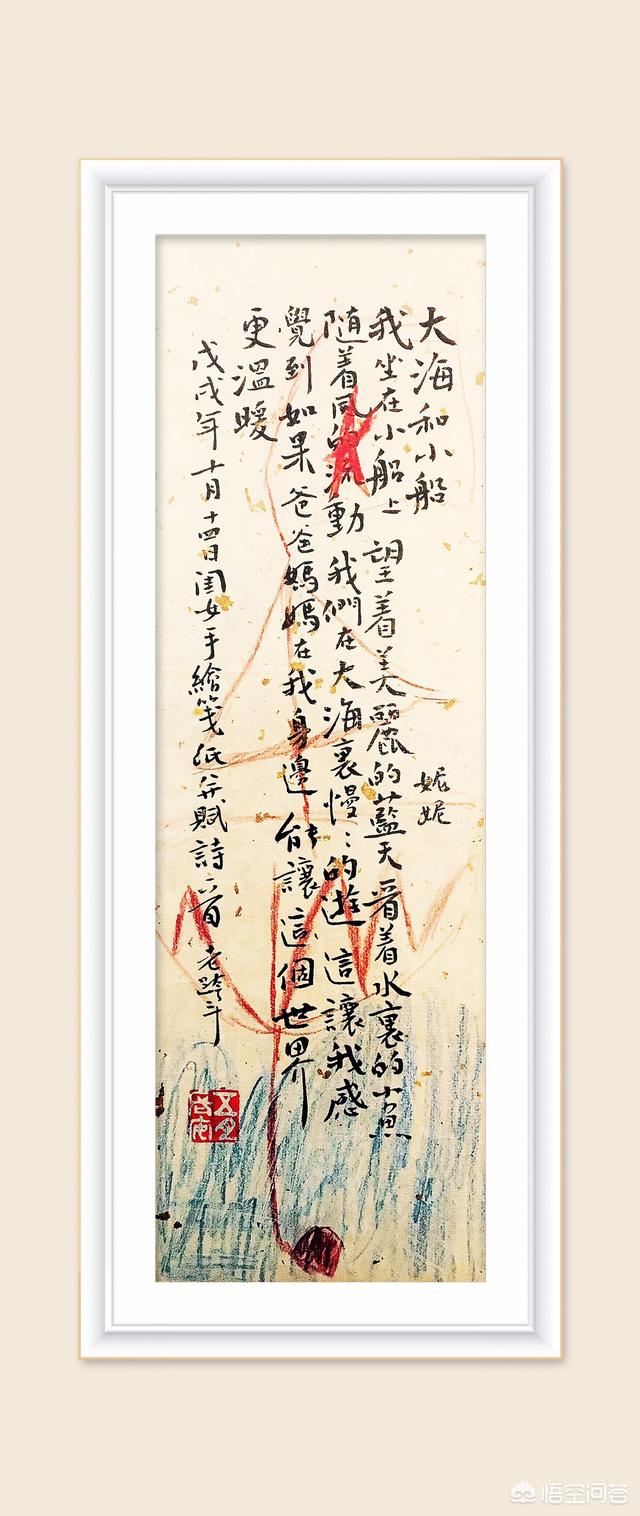 大海和小船
妮妮
我坐在小船上 望着美麗的藍天 看着水裏的小魚
随着风的流動 我們在大海裏慢〻的遊 這讓我感
覺到 如果爸爸媽媽在我身邊 能讓這個世界
更溫暖
戊戌年十月十四日閨女手繪箋紙并賦詩一首 老
悟空问答